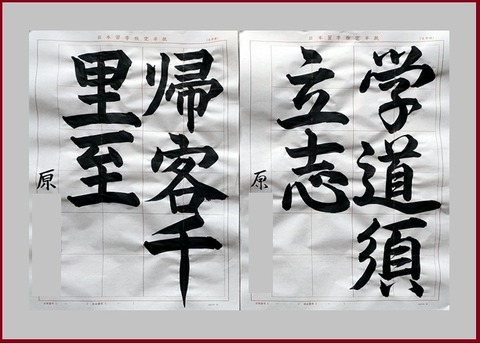 学道須
立志
原
帰客千
里至
原